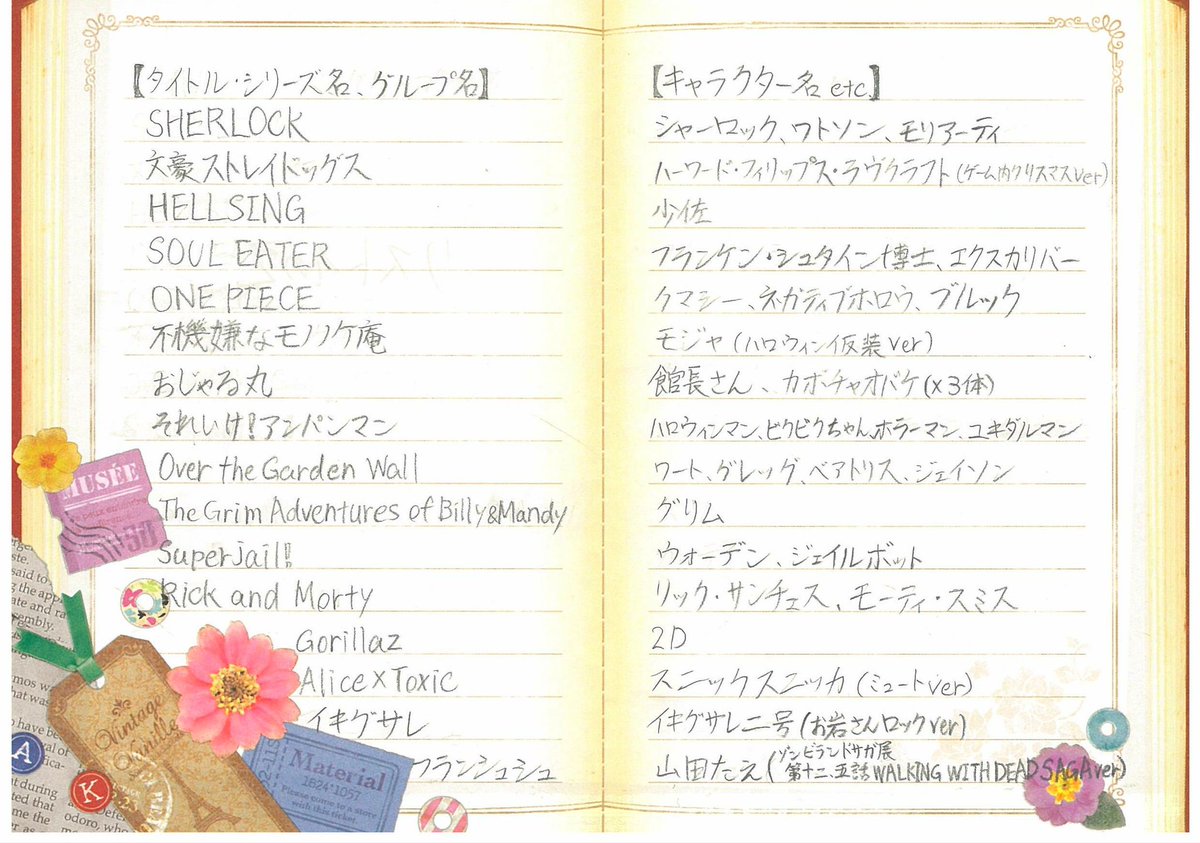 【タイトル・シリーズ名、グループ名】
SHERLOCK
文豪ストレイドッグス
HELLSING
SOUL EATER
ONE PIECE
不機嫌なモノノケ庵
おじゃる丸
それいけ!アンパンマン
Over the Garden Wall
The Grim Adventures of Billy&Mandy
Superjail!!
Rick and Morty
Gorillaz
Alice×Toxic
イキグサレ
フランシュシュ
【キャラクター名 etc.】
シャーロック、ワトソン、モリアーティ
ハーワード・フィリップス・ラヴクラフト(ゲーム内クリスマスver)
少佐
フランケン・シュタイン博士、エクスカリバー
ケマシー、ネガティブホロウ、ブルック
モジャ(ハロウィン仮装ver)
館長さん、カボチャオバケ(×3体)
ハロウィンマン、ビクビクちゃん、ホラーマン、ユキダルマン
ワート、グレッグ、ベアトリス、ジェイソン
グリム
ウォーデン、ジェイルボット
リック・サンチェス、モーティ・スミス
2D
スニックスニッカ(ミュートver)
イキグサレ二号(お岩さんロックver)
山田たえ(ゾンビランドサガ展
第十二.五話 WALKING WITH DEAD SAGAver)
MUSÉE
Vintage
Material
1624*1057
Please come to a store
with this ticket.
A
K